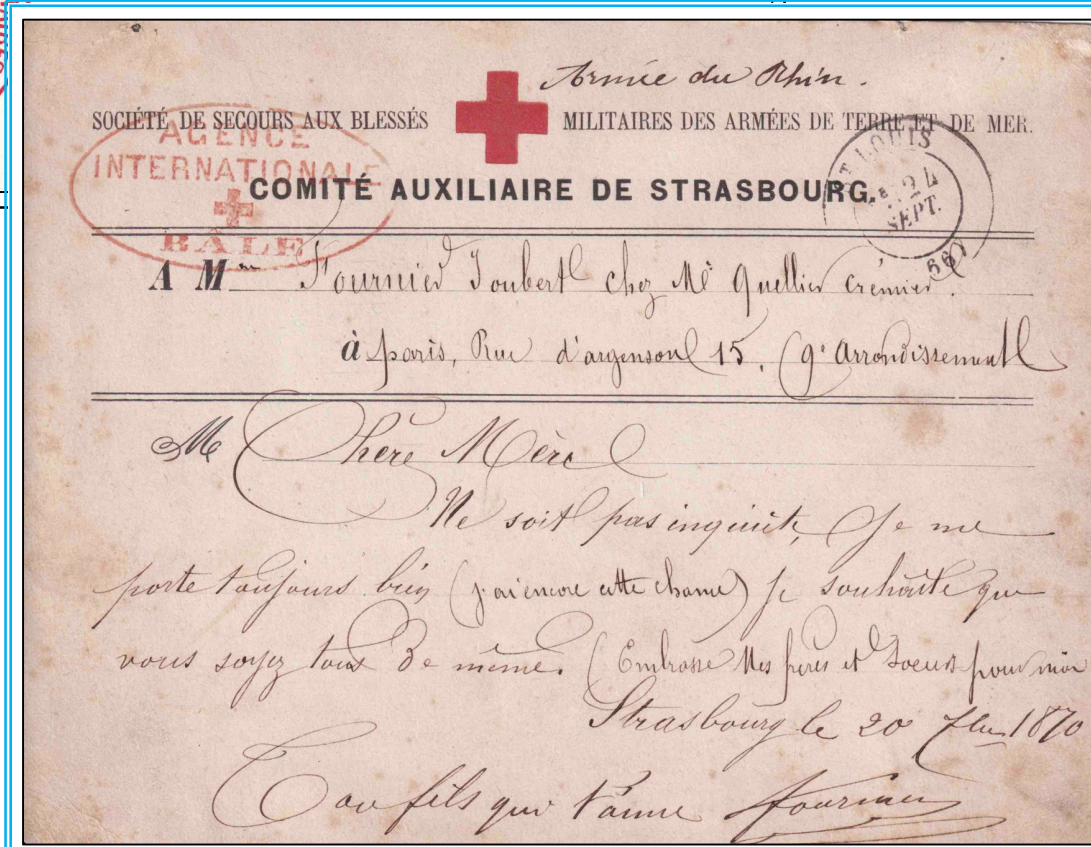 Armée du Rhin.
SOCIÉTÉ DE SECOURS AUX BLESSÉS MILITAIRES DES ARMÉES DE TERRE ET DE MER.
AGENCE
INTERNATIONALE
BÂLE
COMITÉ AUXILIAIRE DE STRASBOURG.
ST LOUIS
24
SEPT.
(66)
A Mme Fournier Joubert chez Mr Quellier crémier.
à paris, Rue d'argenson 15, (9e Arrondissement
M Chère Mère
Ne soit pas inquiete, Je me
porte toujours bien (j'ai encore cette chance) je souhaite que
vous soyez tous de même. (Embrasse Mes frères et Soeurs pour moi
Strasbourg le 20 7bre 1870
Ton fils qui t'aime Fournier